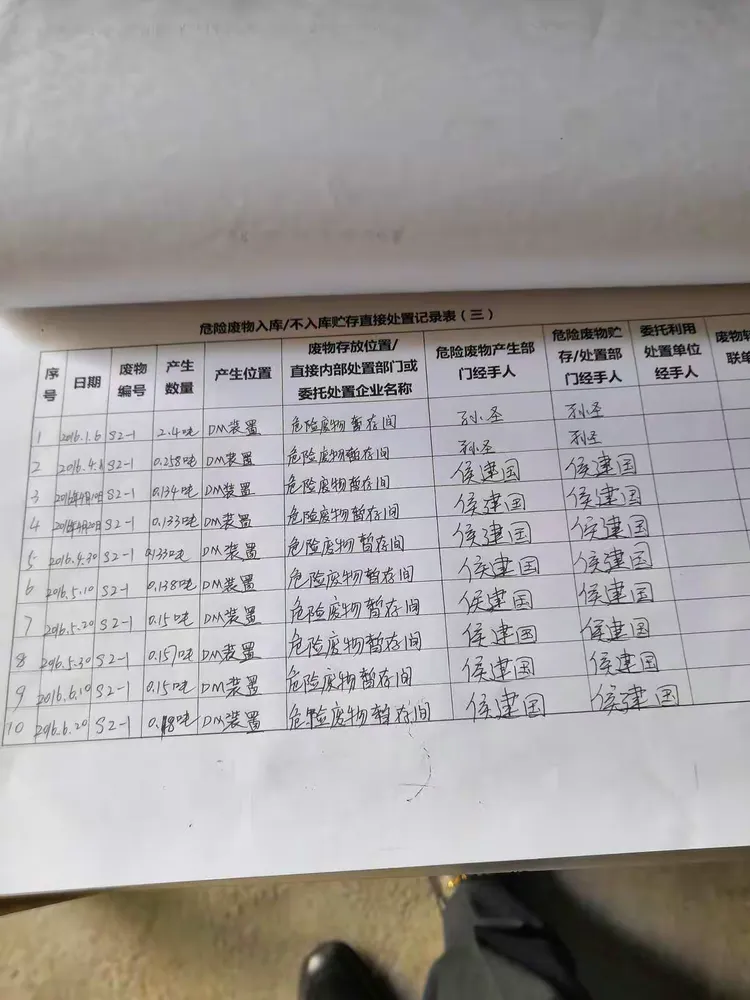 危险废物入库/不入库贮存直接处置记录表（三）
序号 日期 废物编号 产生数量 产生位置 废物存放位置/直接内部处置部门或委托处置企业名称 危险废物产生部门经手人 危险废物贮存/处置部门经手人 委托利用处置单位经手人 废物转 联单
1 2016.1.6 S2-1 2.4吨 DM装置 危险废物暂存间 孙圣 孙圣
2 2016.4.1 S2-1 0.258吨 DM装置 危险废物暂存间 孙圣 孙圣
3 2016年4月10日 S2-1 0.134吨 DM装置 危险废物暂存间 侯建国 侯建国
4 2016年4月20日 S2-1 0.133吨 DM装置 危险废物暂存间 侯建国 侯建国
5 2016.4.30 S2-1 0.133吨 DM装置 危险废物暂存间 侯建国 侯建国
6 2016.5.10 S2-1 0.138吨 DM装置 危险废物暂存间 侯建国 侯建国
7 2016.5.20 S2-1 0.15吨 DM装置 危险废物暂存间 侯建国 侯建国
8 2016.5.30 S2-1 0.157吨 DM装置 危险废物暂存间 侯建国 侯建国
9 2016.6.10 S2-1 0.15吨 DM装置 危险废物暂存间 侯建国 侯建国
10 2016.6.20 S2-1 0.18吨 DM装置 危险废物暂存间 侯建国 侯建国